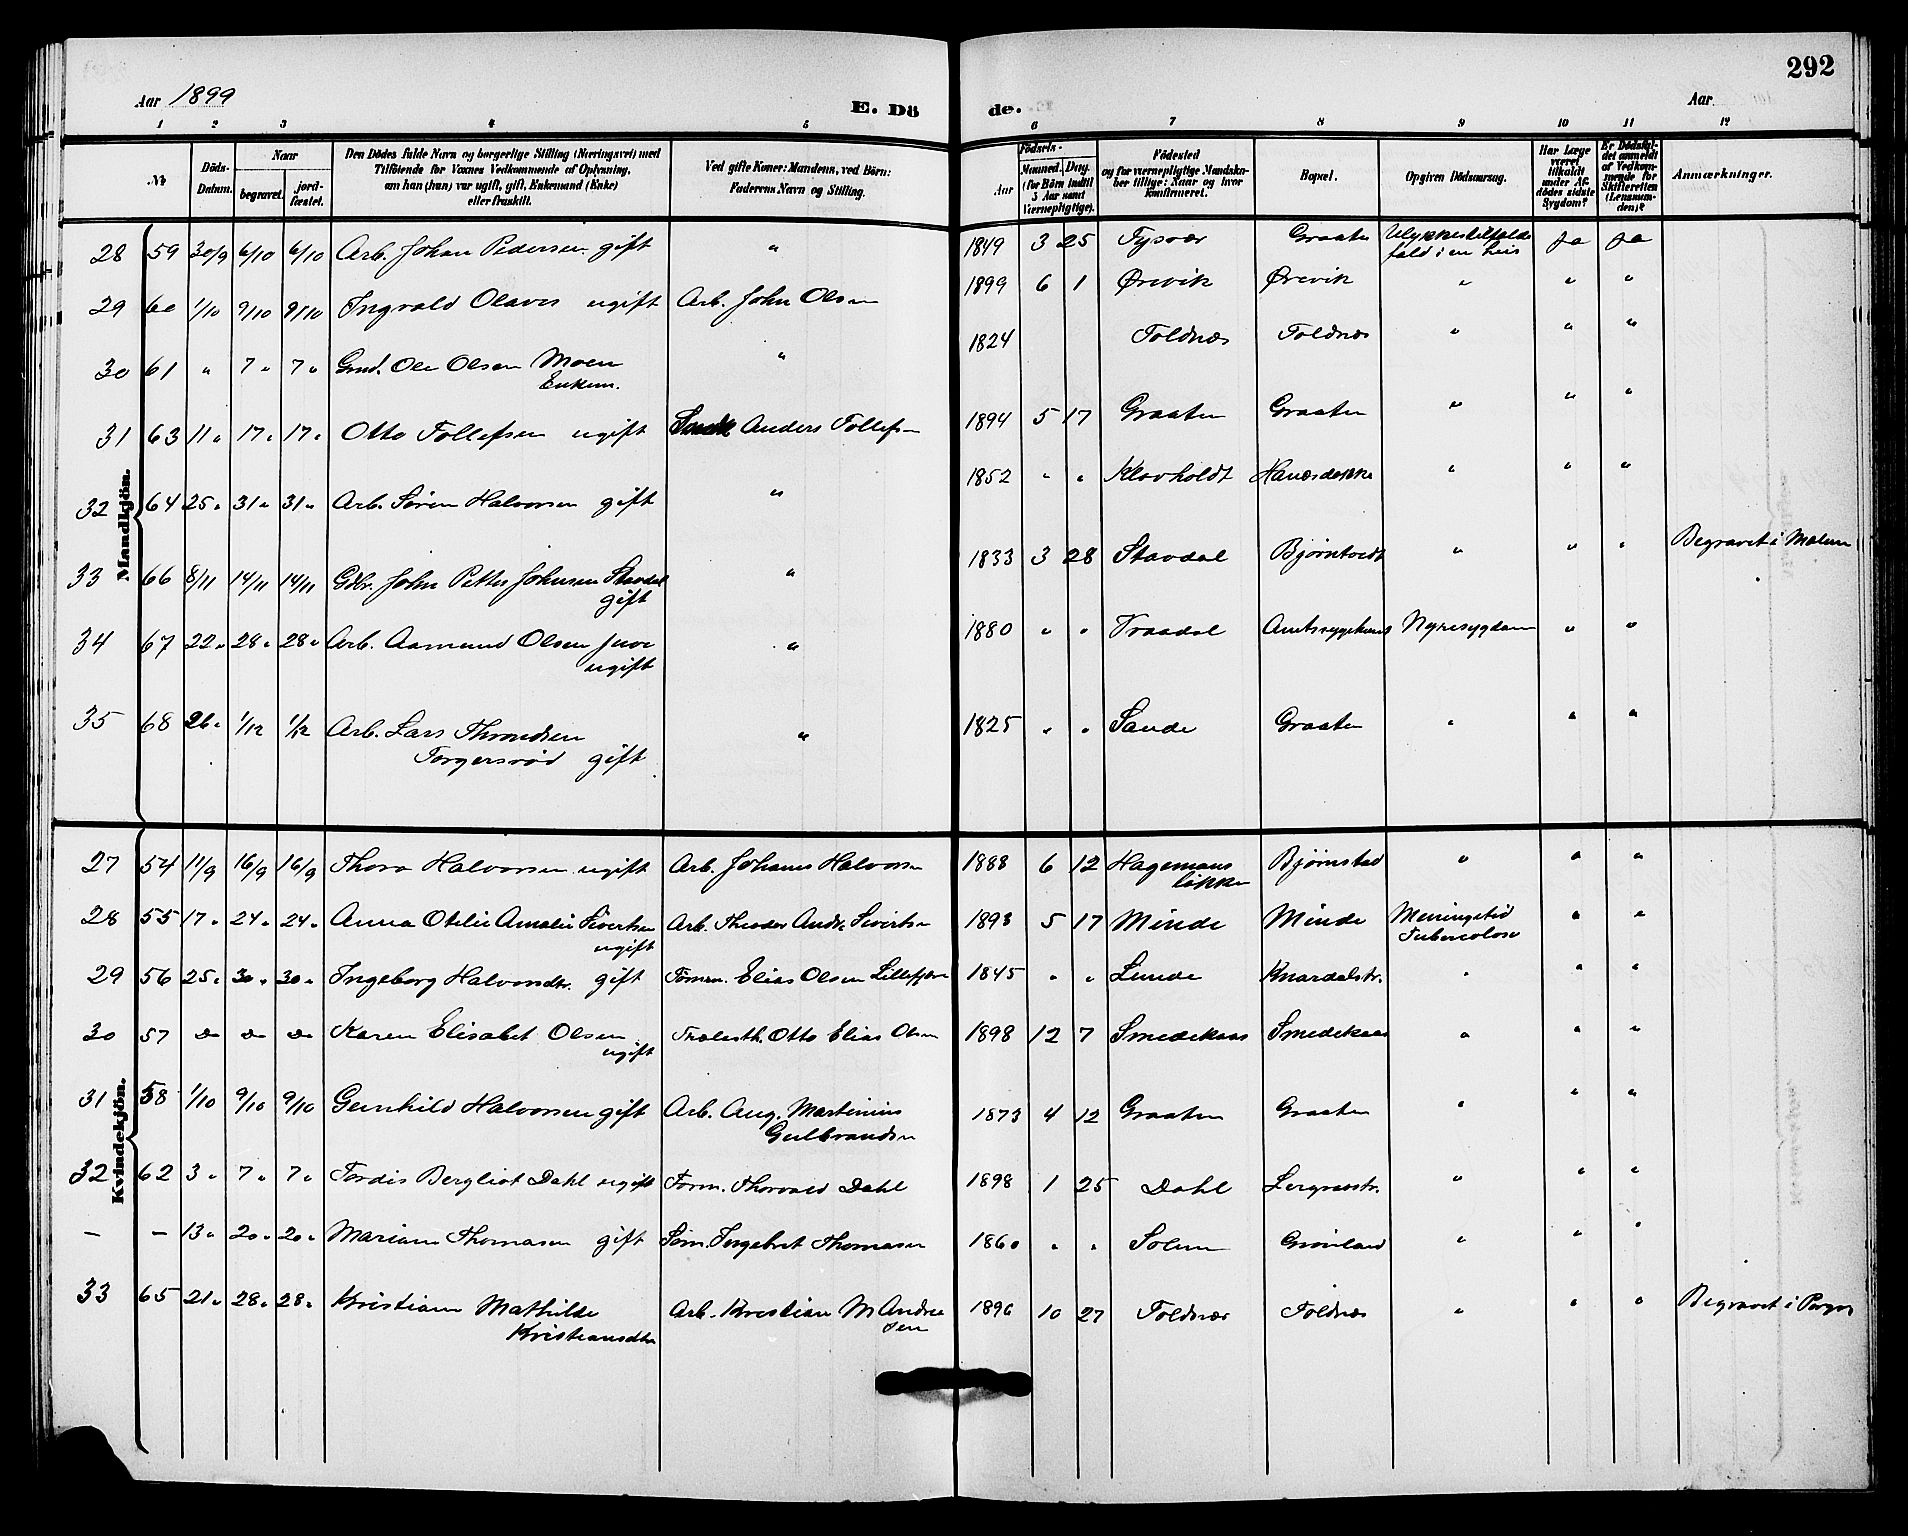 292
Aar 1899
E. Dö
de.
Aar
1 2 3 4 5 6 7 8 9 10 11 12
№
Döds-Datum.
Naar
begravet.
jord-fæstet.
Den Dødes fulde Navn og borgerlige Stilling (Næringsvei) med
Tilføiende for Voxnes Vedkommende af Oplysning,
om han (hun) var ugift, gift, Enkemand (Enke)
eller fraskilt.
Ved gifte Koner: Mandens, ved Börn:
Faderens Navn og Stilling.
Födsels-
Aar
Maaned. Dag.
(for Börn indtil
5 Aar samt
Værnepligtige).
Födested
og for værnepligtige Mandskaber tillige: Naar og hvor
konfirmeret.
Bopæl.
Opgiven Dödsaarsag.
Har Læge været tilkaldt under Afdödes sidste Sygdom?
Er Dödsfaldet anmeldt af Vedkommende for Skifteretten (Lensmanden)?
Anmærkninger.
Mandkjön.
28 59 30/9 6/10 6/10 Arb. Johan Pedersen gift " 1849 3 25 Tysvær Graaten Ulykkestilfælde fald i en heis ja ja
29 60 1/10 9/10 9/10 Ingvald Olaves ugift Arb. John Olsen 1899 6 1 Ørevik Ørevik " " "
30 61 " 7 " 7 " Gmd. Ole Olsen Moen Enkem. " 1824 Foldnæs Foldnæs " " "
31 63 11 " 17 " 17 " Otto Tollefsen ugift Anders Tollefsen 1894 5 17 Graaten Graaten " " "
32 64 25 " 31 " 31 " Arb. Søren Halvorsen gift " 1852 " " Klovholdt " " "
33 66 8/11 14/11 14/11 Gdbr. John Petter Johnsen Stavdal gift " 1833 3 28 Stavdal Bjørntvedt " " " Begravet i Melum
34 67 22 " 28 " 28 " Arb. Aamund Olsen Juve ugift " 1880 " " Vraadal Amtssygehuset Nyresygdom " "
35 68 26 " 1/12 1/12 Arb. Lars Throndsen Torgersrød gift " 1825 " " Sande Graaten " " "
Kvindekjön.
27 54 11/9 16/9 16/9 Thora Halvorsen ugift Arb. Johannes Halvorsen 1888 6 12 Hagemans løkke Bjørnstad " " "
28 55 17 " 24 " 24 " Anna Otelie Amalie Sivertsen ugift Arb. Theodor Andr. Sivertsen 1893 5 17 Minde Minde Meningitid Tuberculose " "
29 56 25 " 30 " 30 " Ingeborg Halvorsdtr. gift Tømm. Elias Olsen 1845 " " Lunde Knardalstr. " " "
30 57 Do Do Do Karen Elisabet Olsen ugift Otto Elias Olsen 1898 12 7 Smedekaas Smedekaas " " "
31 58 1/10 9/10 9/10 Gunhild Halvorsen gift Arb. Aug. Martinius Gulbrandsen 1873 4 12 Graaten Graaten " " "
32 62 3 " 7 " 7 " Tordis Bergliot Dahl ugift Form. Thorvald Dahl 1898 1 25 Dahl " " "
— — 13 " 20 " 20 " Mariane Thomasen gift Søm. Ingebret Thomasen 1860 " " Solum Grønland " " "
33 65 21 " 28 " 28 " Kristiane Mathilde Kristiansdtr Arb. Kristian M Andresen 1896 10 27 Foldnæs Foldnæs " " " Begravet i